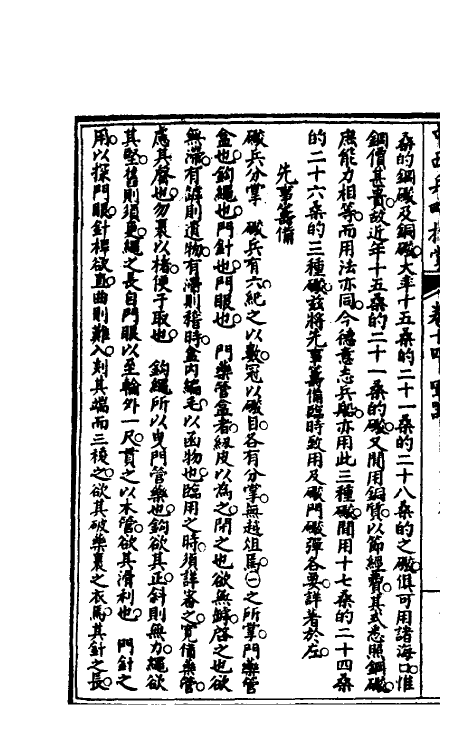 桑的鋼礮及銅礮大率十五桑的二十一桑的二十八桑的之礮俱可用諸海口惟
鋼價甚貴故近年十五桑的二十一桑的礮又間用銅質以節經費其式悉照鋼礮
應能力相等而用法亦同今德意志兵船亦用此三種礮間用十七桑的二十四桑
的二十六桑的三種礮茲將先事籌備臨時致用及礮門礮彈各要詳著於左
先事籌備
礮兵分掌 礮兵有六紀之以數冠以礮目各有分掌無越俎焉㊀之所掌門藥管
盒也鉤繩也門針也門眼也 門藥管盒者紉皮以為之閉之也欲無罅啓之也欲
無滯有罅則遺物有滯則稽時盒內編毛以函物也臨用之時須詳審之寬備藥管
慮其罄也勿裹以楮便于取也 鉤繩所以曳門管藥也鉤欲其正斜則無力繩欲
其堅舊則須更繩之長自門眼以至輪外一尺貫之以木管欲其滑利也 門針之
用以探門眼針桿欲直曲則難入刻其端而三稜之欲其破藥裹之衣焉其針之長
中西兵略指掌 卷十四